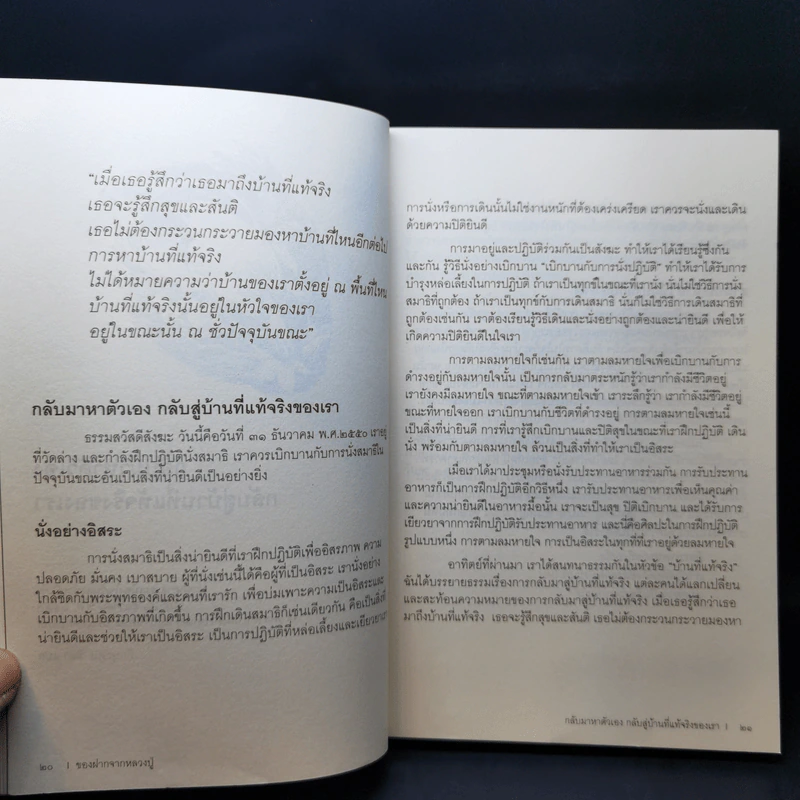 “เมื่อเธอรู้สึกว่าเธอมาถึงบ้านที่แท้จริง
เธอจะรู้สึกสุขและสันติ
เธอไม่ต้องกระวนกระวายมองหาบ้านที่ไหนอีกต่อไป
การหาบ้านที่แท้จริง
ไม่ได้หมายความว่าบ้านของเราตั้งอยู่ ณ พื้นที่ไหน
บ้านที่แท้จริงนั้นอยู่ในหัวใจของเรา
อยู่ในขณะนั้น ณ ชั่วปัจจุบันขณะ”
กลับมาหาตัวเอง กลับสู่บ้านที่แท้จริงของเรา
ธรรมสวัสดีสังฆะ วันนี้คือวันที่ ๓๑ ธันวาคม พ.ศ.๒๕๕๐ เราอยู่
ที่วัดล่าง และกำลังฝึกปฏิบัตินั่งสมาธิ เราควรเบิกบานกับการนั่งสมาธิใน
ปัจจุบันขณะอันเป็นสิ่งที่น่ายินดีเป็นอย่างยิ่ง
นั่งอย่างอิสระ
การนั่งสมาธิเป็นสิ่งน่ายินดีที่เราฝึกปฏิบัติเพื่ออิสรภาพ ความ
ปลอดภัย มั่นคง เบาสบาย ผู้ที่นั่งเช่นนี้ได้คือผู้ที่เป็นอิสระ เรานั่งอย่าง
ใกล้ชิดกับพระพุทธองค์และคนที่เรารัก เพื่อบ่มเพาะความเป็นอิสระและ
เบิกบานกับอิสรภาพที่เกิดขึ้น การฝึกเดินสมาธิก็เช่นเดียวกัน คือเป็นสิ่งที่
น่ายินดีและช่วยให้เราเป็นอิสระ เป็นการปฏิบัติที่หล่อเลี้ยงและเยียวยาเรา
๒๐ | ของฝากจากหลวงปู่
การนั่งหรือการเดินนั้นไม่ใช่งานหนักที่ต้องเคร่งเครียด เราควรจะนั่งและเดิน
ด้วยความปิติยินดี
การมาอยู่และปฏิบัติร่วมกันเป็นสังฆะ ทำให้เราได้เรียนรู้ซึ่งกัน
และกัน รู้วิธีนั่งอย่างเบิกบาน “เบิกบานกับการนั่งปฏิบัติ” ทำให้เราได้รับการ
บำรุงหล่อเลี้ยงในการปฏิบัติ ถ้าเราเป็นทุกข์ในขณะที่เรานั่ง นั่นไม่ใช่วิธีการนั่ง
สมาธิที่ถูกต้อง ถ้าเราเป็นทุกข์กับการเดินสมาธิ นั่นก็ไม่ใช่วิธีการเดินสมาธิที่
ถูกต้องเช่นกัน เราต้องเรียนรู้วิธีเดินและนั่งอย่างถูกต้องและน่ายินดี เพื่อให้
เกิดความปิติยินดีในใจเรา
การตามลมหายใจก็เช่นกัน เราตามลมหายใจเพื่อเบิกบานกับการ
ดำรงอยู่กับลมหายใจนั้น เป็นการกลับมาตระหนักรู้ว่าเรากำลังมีชีวิตอยู่
เรายังคงมีลมหายใจ ขณะที่ตามลมหายใจเข้า เราระลึกรู้ว่า เรากำลังมีชีวิตอยู่
ขณะที่หายใจออก เราเบิกบานกับชีวิตที่ดำรงอยู่ การตามลมหายใจเช่นนี้
เป็นสิ่งที่น่ายินดี การที่เรารู้สึกเบิกบานและปิติสุขในขณะที่เราฝึกปฏิบัติ เดิน
นั่ง พร้อมกับตามลมหายใจ ล้วนเป็นสิ่งที่ทำให้เราเป็นอิสระ
เมื่อเราได้มาประชุมหรือนั่งรับประทานอาหารร่วมกัน การรับประทาน
อาหารก็เป็นการฝึกปฏิบัติอีกวิธีหนึ่ง เรารับประทานอาหารเพื่อเห็นคุณค่า
และความน่ายินดีในอาหารมื้อนั้น เราจะเป็นสุข ปิติเบิกบาน และได้รับการ
เยียวยาจากการฝึกปฏิบัติรับประทานอาหาร และนี่คือศิลปะในการฝึกปฏิบัติ
รูปแบบหนึ่ง การตามลมหายใจ การเป็นอิสระในทุกที่ที่เราอยู่ด้วยลมหายใจ
อาทิตย์ที่ผ่านมา เราได้สนทนาธรรมกันในหัวข้อ “บ้านที่แท้จริง”
ฉันได้บรรยายธรรมเรื่องการกลับมาสู่บ้านที่แท้จริง แต่ละคนได้แลกเปลี่ยน
และสะท้อนความหมายของการกลับมาสู่บ้านที่แท้จริง เมื่อเธอรู้สึกว่าเธอ
มาถึงบ้านที่แท้จริง เธอจะรู้สึกสุขและสันติ เธอไม่ต้องกระวนกระวายมองหา
กลับมาหาตัวเอง กลับสู่บ้านที่แท้จริงของเรา | ๒๑